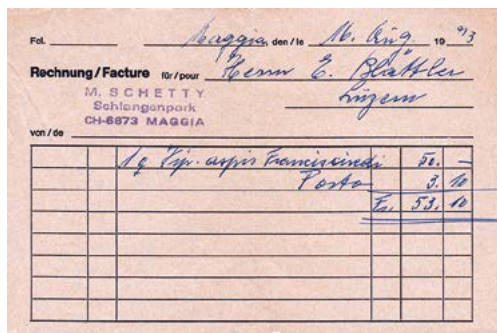 Fol. Maggia, den / le 16. Aug. 19 93
Rechnung / Facture für / pour Herrn E. Blättler
M. SCHETTY Luzern
Schlangenpark
CH-6673 MAGGIA
von / de
1 g Vip. aspis Francisciredi 50. —
Porto 3. 10
Fr. 53. 10